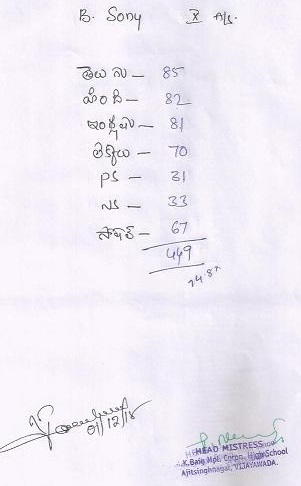 B. Sony X A/s.
తెలుగు – 85
హింది – 82
ఇంగ్లీషు – 81
లెక్కలు – 70
PS – 31
NS – 33
సోషల్ – 67
449
74.8%
01/12/18
HEAD MISTRESS
K.Baig Mpl. Corpn. High School
Ajitsinghnagar, VIJAYAWADA.